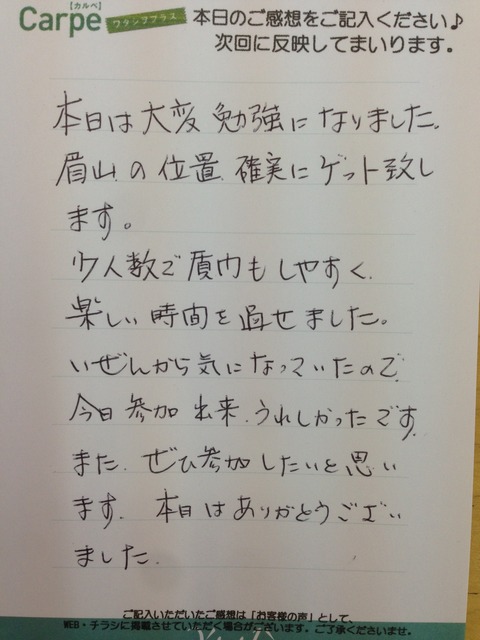 【カルベ】
Carpe
ワランクプラス
本日のご感想をご記入ください♪
次回に反映してまいります。
本日は大変勉強になりました。
眉山の位置、確実にゲット致し
ます。
少人数で質問もしやすく、
楽しい時間を過せました。
いぜんから気になっていたので、
今日参加出来、うれしかったです。
また、ぜひ参加したいと思い
ます。本日はありがとうござい
ました。
ご記入いただいたご感想は「お客様の声」として、
WEB・チラシに掲載させていただく場合がございます。ご了承くださいませ。